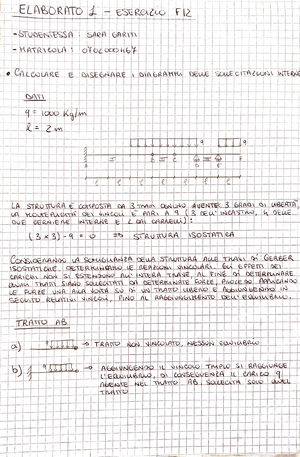 ELABORATO 1 - ESERCIZIO F12
- STUDENTESSA : SARA
- MATRICOLA : 0702000467
• CALCOLARE E DISEGNARE I DIAGRAMMI DELLE SOLLECITAZIONI INTERNE
DATI
q = 1000 Kg/m
l = 2 m
q
q
LA STRUTTURA È COMPOSTA DA 3 TRATTI OGNUNO AVENTE 3 GRADI DI LIBERTÀ,
LA MOLTEPLICITÀ DEI VINCOLI È PARI A 9 (3 DELL'INCASTRO, 4 DELLE
DUE CERNIERE INTERNE E 2 DAI CARRELLI):
(3 × 3) - 9 = 0 ⇒ STRUTTURA ISOSTATICA
CONSIDERANDO LA SOMIGLIANZA DELLA STRUTTURA ALLE TRAVI DI GERBER
ISOSTATICHE, DETERMINIAMO LE REAZIONI VINCOLARI. GLI EFFETTI DEI
CARICHI NON SI ESTENDONO ALL'INTERA TRAVE, AL FINE DI DETERMINARE
QUALI TRATTI SIANO SOLLECITATI DA DETERMINATE FORZE, PROCEDO APPLICANDO
LE FORZE UNA ALLA VOLTA SU DI UN TRATTO LIBERO E AGGIUNGENDO IN
SEGUITO RELATIVI VINCOLI, FINO AL RAGGIUNGIMENTO DELL'EQUILIBRIO.
TRATTO AB
a) q → TRATTO NON VINCOLATO, NESSUN EQUILIBRIO
b) q → AGGIUNGENDO IL VINCOLO TRIPLO SI RAGGIUNGE
L'EQUILIBRIO, DI CONSEGUENZA IL CARICO q
AGENTE NEL TRATTO AB SOLLECITA SOLO QUEL
TRATTO